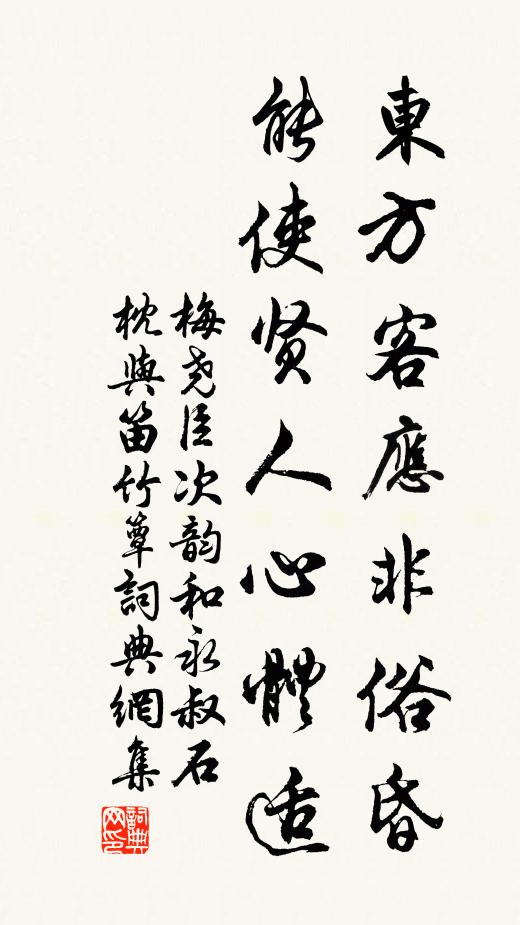 東方客應非俗昏
能使贤人心體适
梅尧臣次韵和永叔石
枕與笛竹簟詞典網集
詞典网印